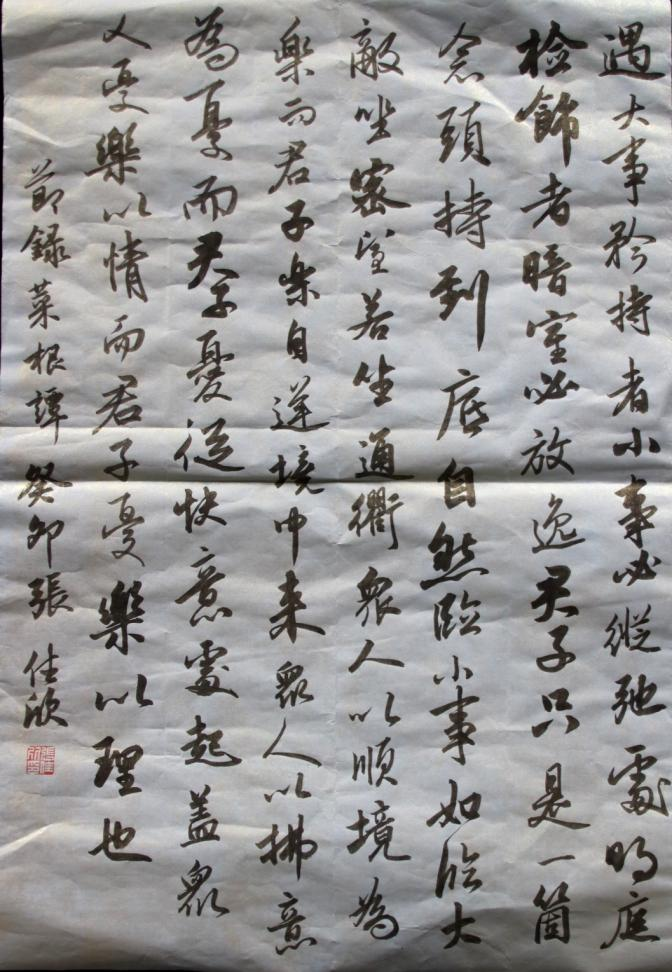 遇大事矜持者小事必縱弛處明庭
檢飾者暗室必放逸君子只是一箇
念頭持到底自然臨小事如臨大
敵坐密室若坐通衢衆人以順境為
樂而君子樂自逆境中来衆人以拂意
為憂而君子憂從快意處起蓋衆
人憂樂以情而君子憂樂以理也
節録菜根譚癸卯張佳欣